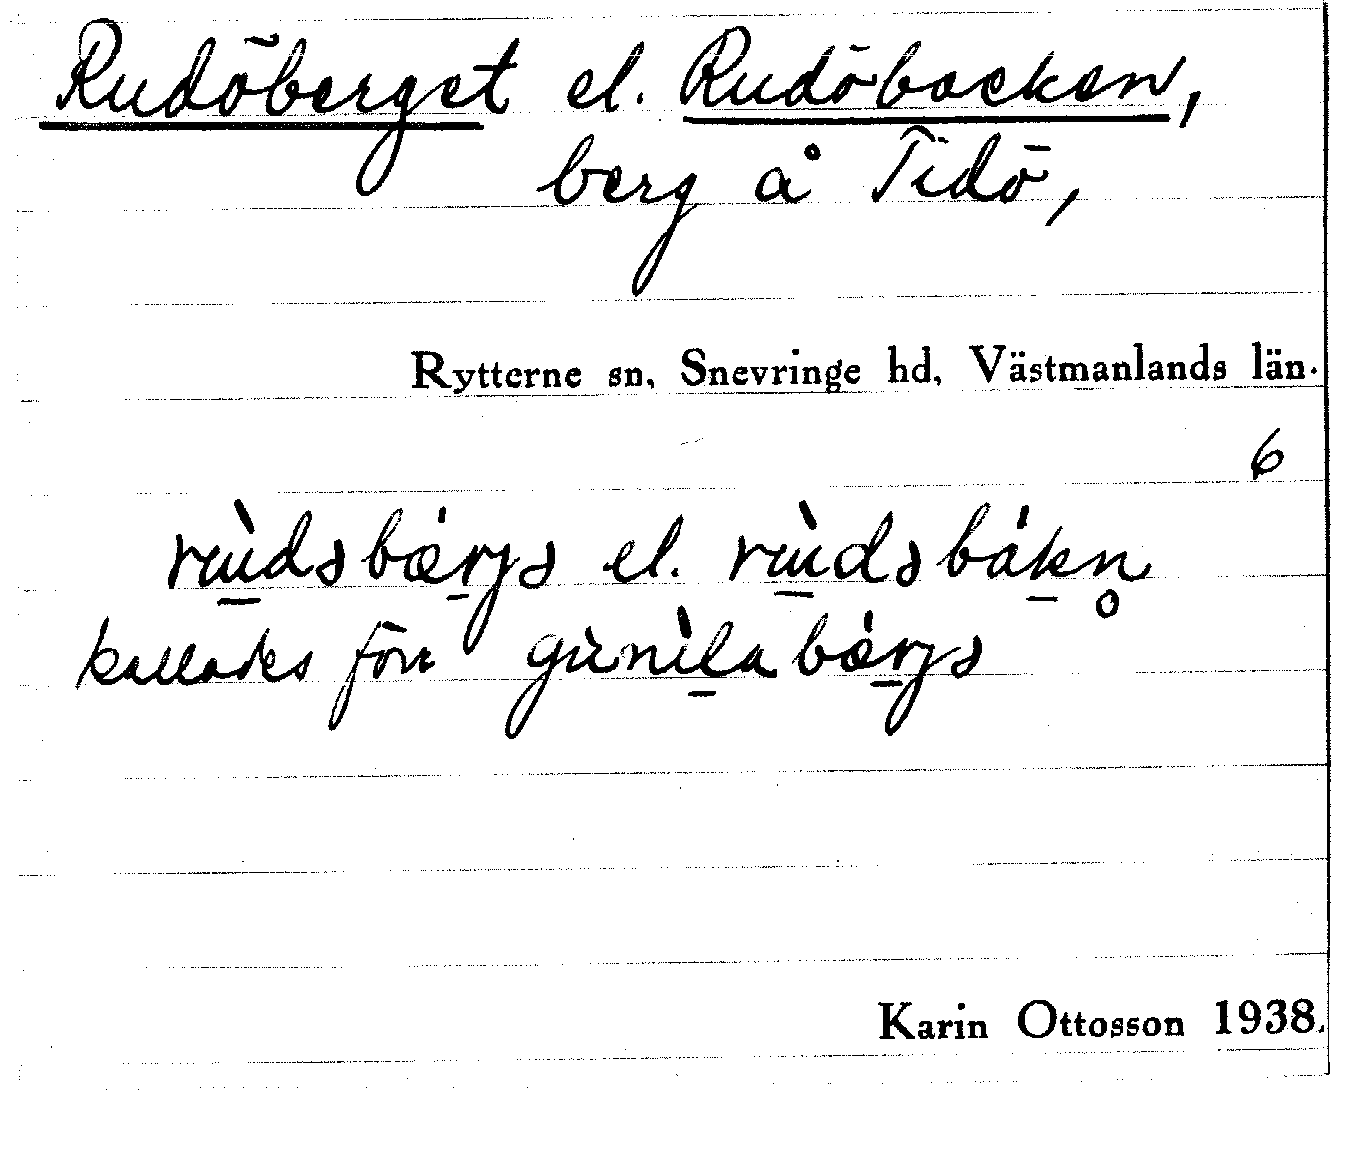 Rudöberget el. Rudöbacken,
berg å Tidö,
Rytterne sn, Snevringe hd, Västmanlands län.
6
el.
kallades förr
Karin Ottosson 1938.